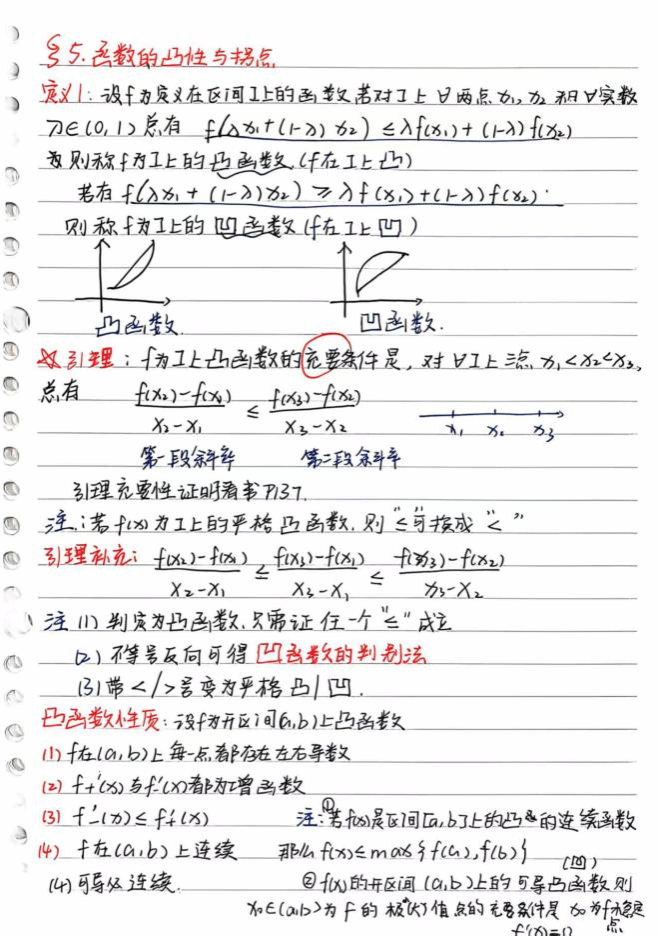 §5.函数的凸性与拐点
定义1:设f为定义在区间I上的函数若对I上∀两点x₁,x₂和∀实数
λ∈(0,1)总有 f(λx₁+(1-λ)x₂)≤λf(x₁)+(1-λ)f(x₂)
则称f为I上的凸函数(f在I上凸)
若有f(λx₁+(1-λ)x₂)≥λf(x₁)+(1-λ)f(x₂)
则称f为I上的凹函数(f在I上凹)
凸函数. 凹函数.
☆引理:f为I上凸函数的充要条件是,对∀I上三点x₁<x₂<x₃,
总有 f(x₂)-f(x₁)/x₂-x₁ ≤ f(x₃)-f(x₂)/x₃-x₂
x₁ x₂ x₃
第一段斜率 第二段斜率
引理充要性证明看书P137.
注:若f(x)为I上的严格凸函数,则"≤"可换成"<"
引理补充: f(x₂)-f(x₁)/x₂-x₁ ≤ f(x₃)-f(x₁)/x₃-x₁ ≤ f(x₃)-f(x₂)/x₃-x₂
注(1)判定为凸函数,只需证任一个"≤"成立
(2)不等号反向可得凹函数的判别法
(3)带</>号变为严格凸/凹.
凸函数性质:设f为开区间(a,b)上凸函数
(1)f在(a,b)上每一点都存在左右导数
(2)f₊'(x)与f₋'(x)都为增函数
(3)f₋'(x)≤f₊'(x) 注:①若f(x)是区间[a,b]上的凸的连续函数
(4)f在(a,b)上连续 那么f(x)≤max{f(a),f(b)}
(凹)
(4)可导必连续. ②f(x)的开区间(a,b)上的可导凸函数则
x₀∈(a,b)为f的极小(大)值点的充要条件是x₀为f稳定
点
f'(x)=0